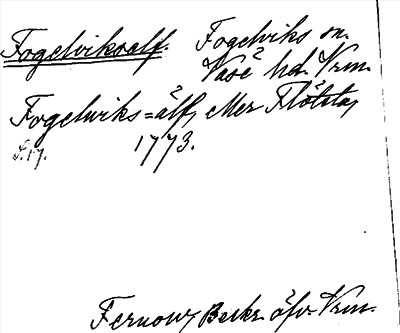 Fogelviksälf. Fogelviks sn.
Väse hd. Vrm.
Fogelwiks=älf, eller Flöista,
s. 17. 1773.
Fernow, Beskr. öfv. Vrm.